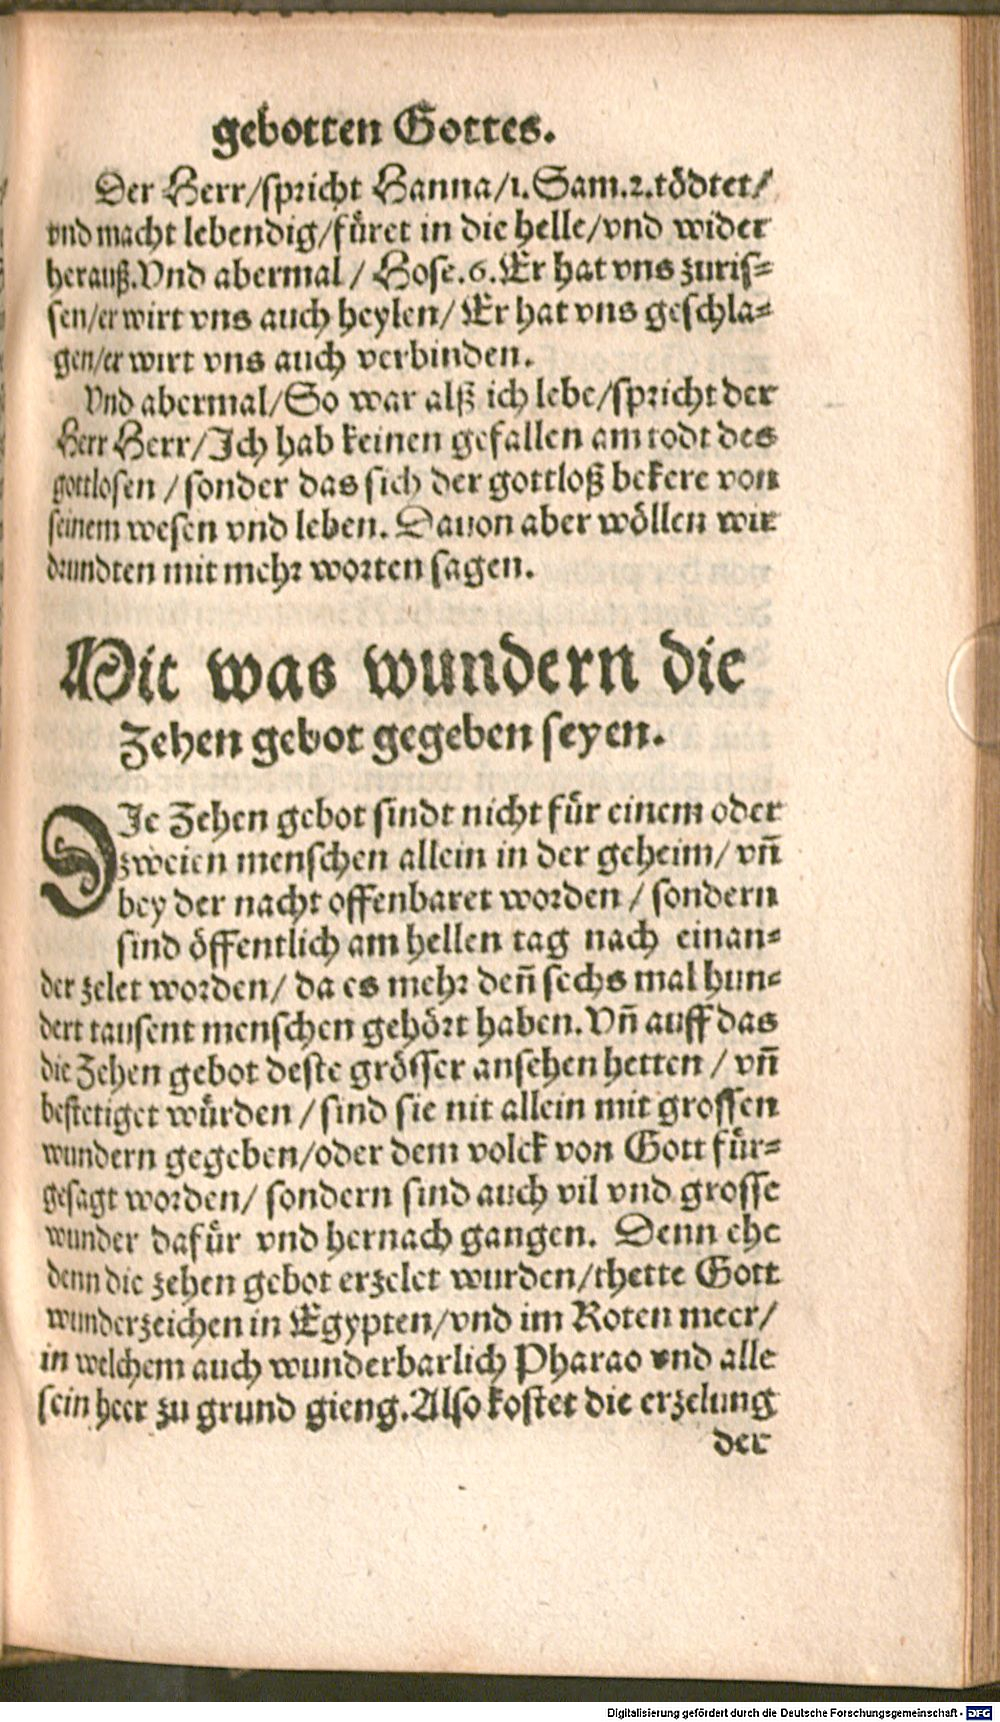 gebotten Gottes.
Der Herr/spricht Hanna/1. Sam.2.tödtet/
vnd macht lebendig/füret in die helle/vnd wider
herauß.Vnd abermal / Hose.6.Er hat vns zuris-
sen/er wirt vns auch heylen/ Er hat vns geschla-
gen/er wirt vns auch verbinden.
Vnd abermal/So war alß ich lebe/spricht der
Herr Herr/Ich hab keinen gefallen am todt des
gottlosen / sonder das sich der gottloß bekere von
seinem wesen vnd leben. Dauon aber wöllen wir
drundten mit mehr worten sagen.
Mit was wundern die
Zehen gebot gegeben seyen.
DIe Zehen gebot sindt nicht für einem oder
zweien menschen allein in der geheim/ vñ
bey der nacht offenbaret worden / sondern
sind öffentlich am hellen tag nach einan-
der zelet worden/ da es mehr deñ sechs mal hun-
dert tausent menschen gehört haben. Vñ auff das
die Zehen gebot deste grösser ansehen hetten / vñ
bestetiget würden / sind sie nit allein mit grossen
wundern gegeben/oder dem volck von Gott für-
gesagt worden/ sondern sind auch vil vnd grosse
wunder dafür vnd hernach gangen. Denn ehe
denn die zehen gebot erzelet wurden/thette Gott
wunderzeichen in Egypten/vnd im Roten meer/
in welchem auch wunderbarlich Pharao vnd alle
sein heer zu grund gieng.Also kostet die erzelung
der
Digitalisierung gefördert durch die Deutsche Forschungsgemeinschaft - DFG